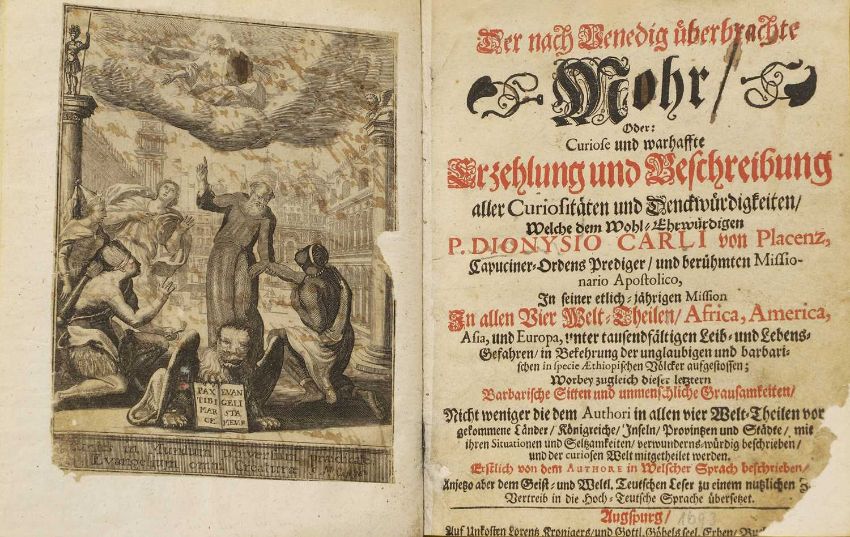 PAX EVAN
TIBI GELI
MAR STA
CE MEVS
Mundum Universum praedicate
Evangelium omni Creaturae
Der nach Venedig überbrachte
Mohr/
Oder:
Curiose und warhaffte
Erzehlung und Beschreibung
aller Curiositäten und Denckwürdigkeiten/
Welche dem Wohl-Ehrwürdigen
P. DIONYSIO CARLI von Placenz,
Capuciner-Ordens Prediger/ und berühmten Missio-
nario Apostolico,
In seiner etlich-jährigen Mission
In allen Vier Welt-Theilen/ Africa, America,
Asia, und Europa, unter tausendfältigen Leib- und Lebens-
Gefahren/ in Bekehrung der unglaubigen und barbari-
schen in specie Æthiopischen Völcker aufgestossen;
Worbey zugleich dieser letztern
Barbarische Sitten und unmenschliche Grausamkeiten/
Nicht weniger die dem Authori in allen vier Welt-Theilen vor
gekommene Länder/ Königreiche/ Inseln/ Provintzen und Städte/ mit
ihren Situationen und Seltzamkeiten/ verwunderns-würdig beschrieben/
und der curiosen Welt mitgetheilet werden.
Erstlich von dem AUTHORE in Welscher Sprach beschrieben/
Anjetzo aber dem Geist- und Weltl. Teutschen Leser zu einem nutzlichen
Vertreib in die Hoch-Teutsche Sprache übersetzet.
Augspurg/
Auf Unkosten Lorentz Kronigers/ und Gottl. Göbels seel. Erben/